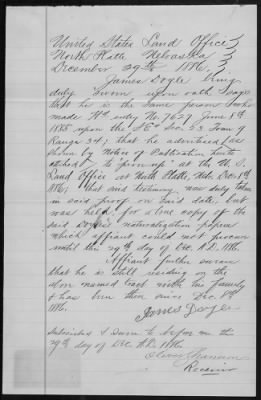 United States Land Office
North Platte, Nebraska
December 29th 1886.
James Doyle being
duly sworn upon oath says
that he is the same person who
made Hd entry No 7629 June 8th
1885 upon the SE4 Sec. 23 Town 9
Range 34; that he advertised as
shown by Notice of Publication hereto
attached to "prove up" at the U. S.
Land Office at North Platte, Neb. Dec. 8th
1886; that said testimony was duly taken
in said proof on said date. but
was held, for a true copy of the
said Doyle's naturalization papers
which affiant could not procure
until this 29th day of Dec. A.D. 1886.
Affiant further swears
that he is still residing on the
above named tract with his family
& has been there since Dec. 8th
1886.
James Doyle
Subscribed & sworn to before me this
29th day of Dec. A.D. 1886.
Receiver